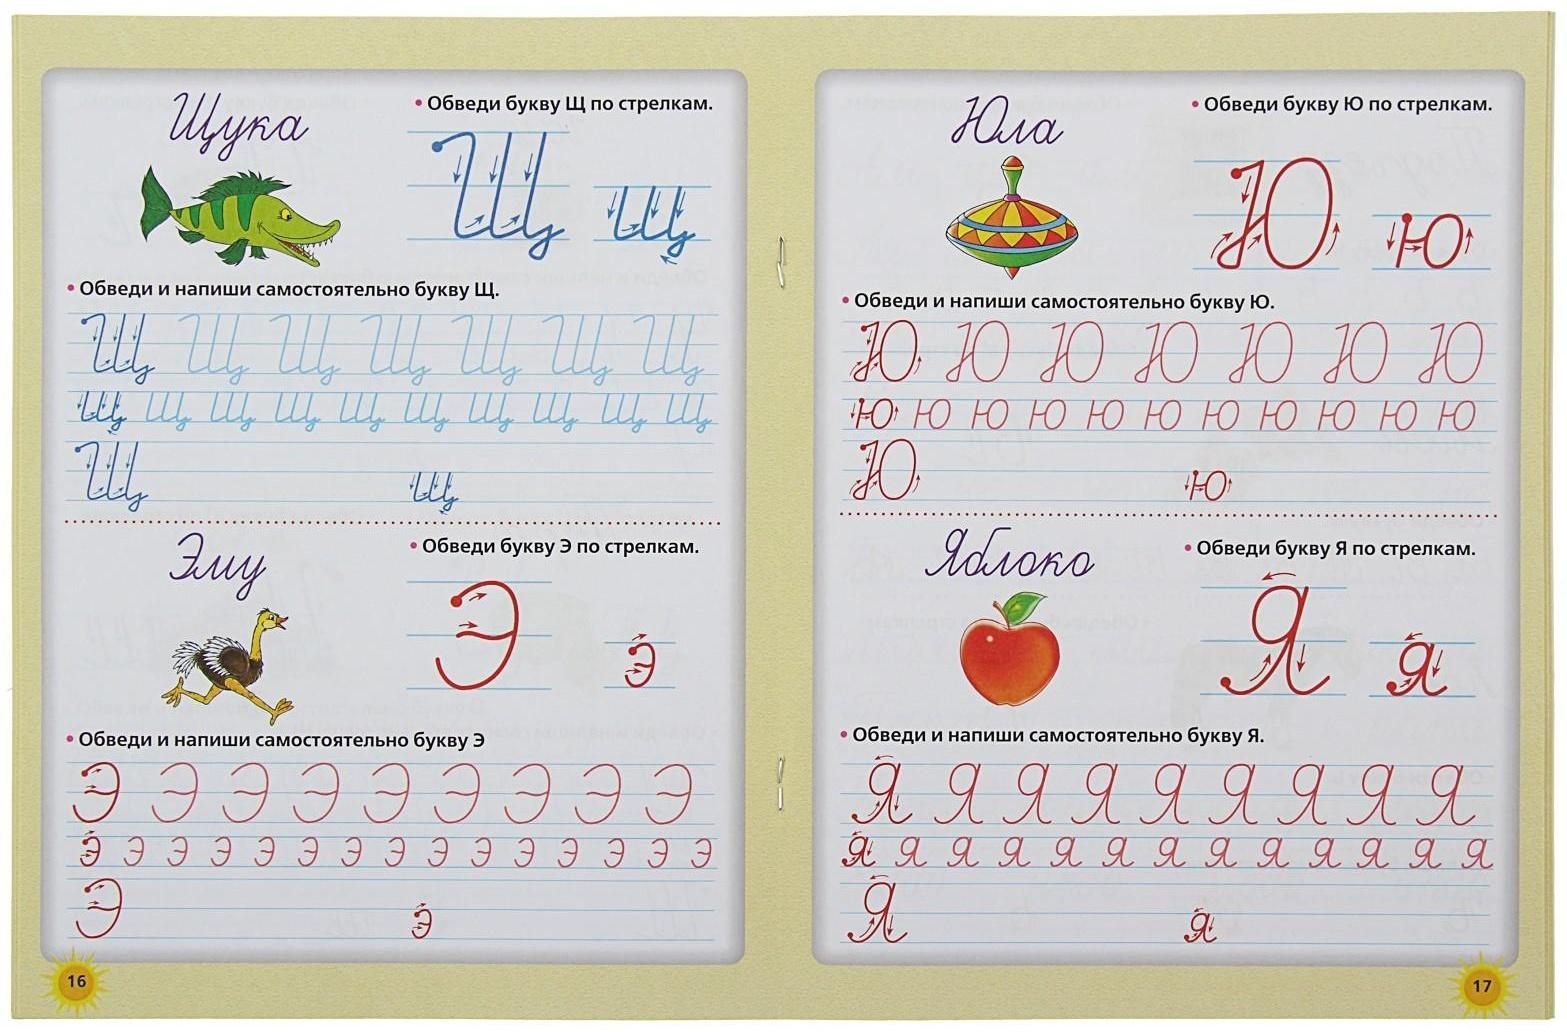 Щука
• Обведи букву Щ по стрелкам.
Щ щ
• Обведи и напиши самостоятельно букву Щ.
Щ Щ Щ Щ Щ Щ Щ
щ щ щ щ щ щ щ щ щ щ
Щ щ
Эму
• Обведи букву Э по стрелкам.
Э э
• Обведи и напиши самостоятельно букву Э
Э Э Э Э Э Э Э Э Э
э э э э э э э э э э э э э э э
Э э
16
Юла
• Обведи букву Ю по стрелкам.
Ю ю
• Обведи и напиши самостоятельно букву Ю.
Ю Ю Ю Ю Ю Ю Ю
ю ю ю ю ю ю ю ю ю ю ю
Ю ю
Яблоко
• Обведи букву Я по стрелкам.
Я я
• Обведи и напиши самостоятельно букву Я.
Я Я Я Я Я Я Я Я Я
я я я я я я я я я я я я я
Я я
17